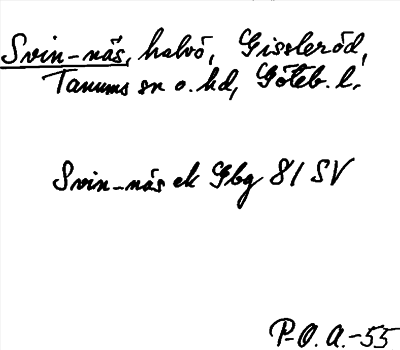 Svin-näs, halvö, Gissleröd,
Tanums sn o. hd, Göteb. l.
Svin-näs ek Gbg 81 SV
P-O. A.-55